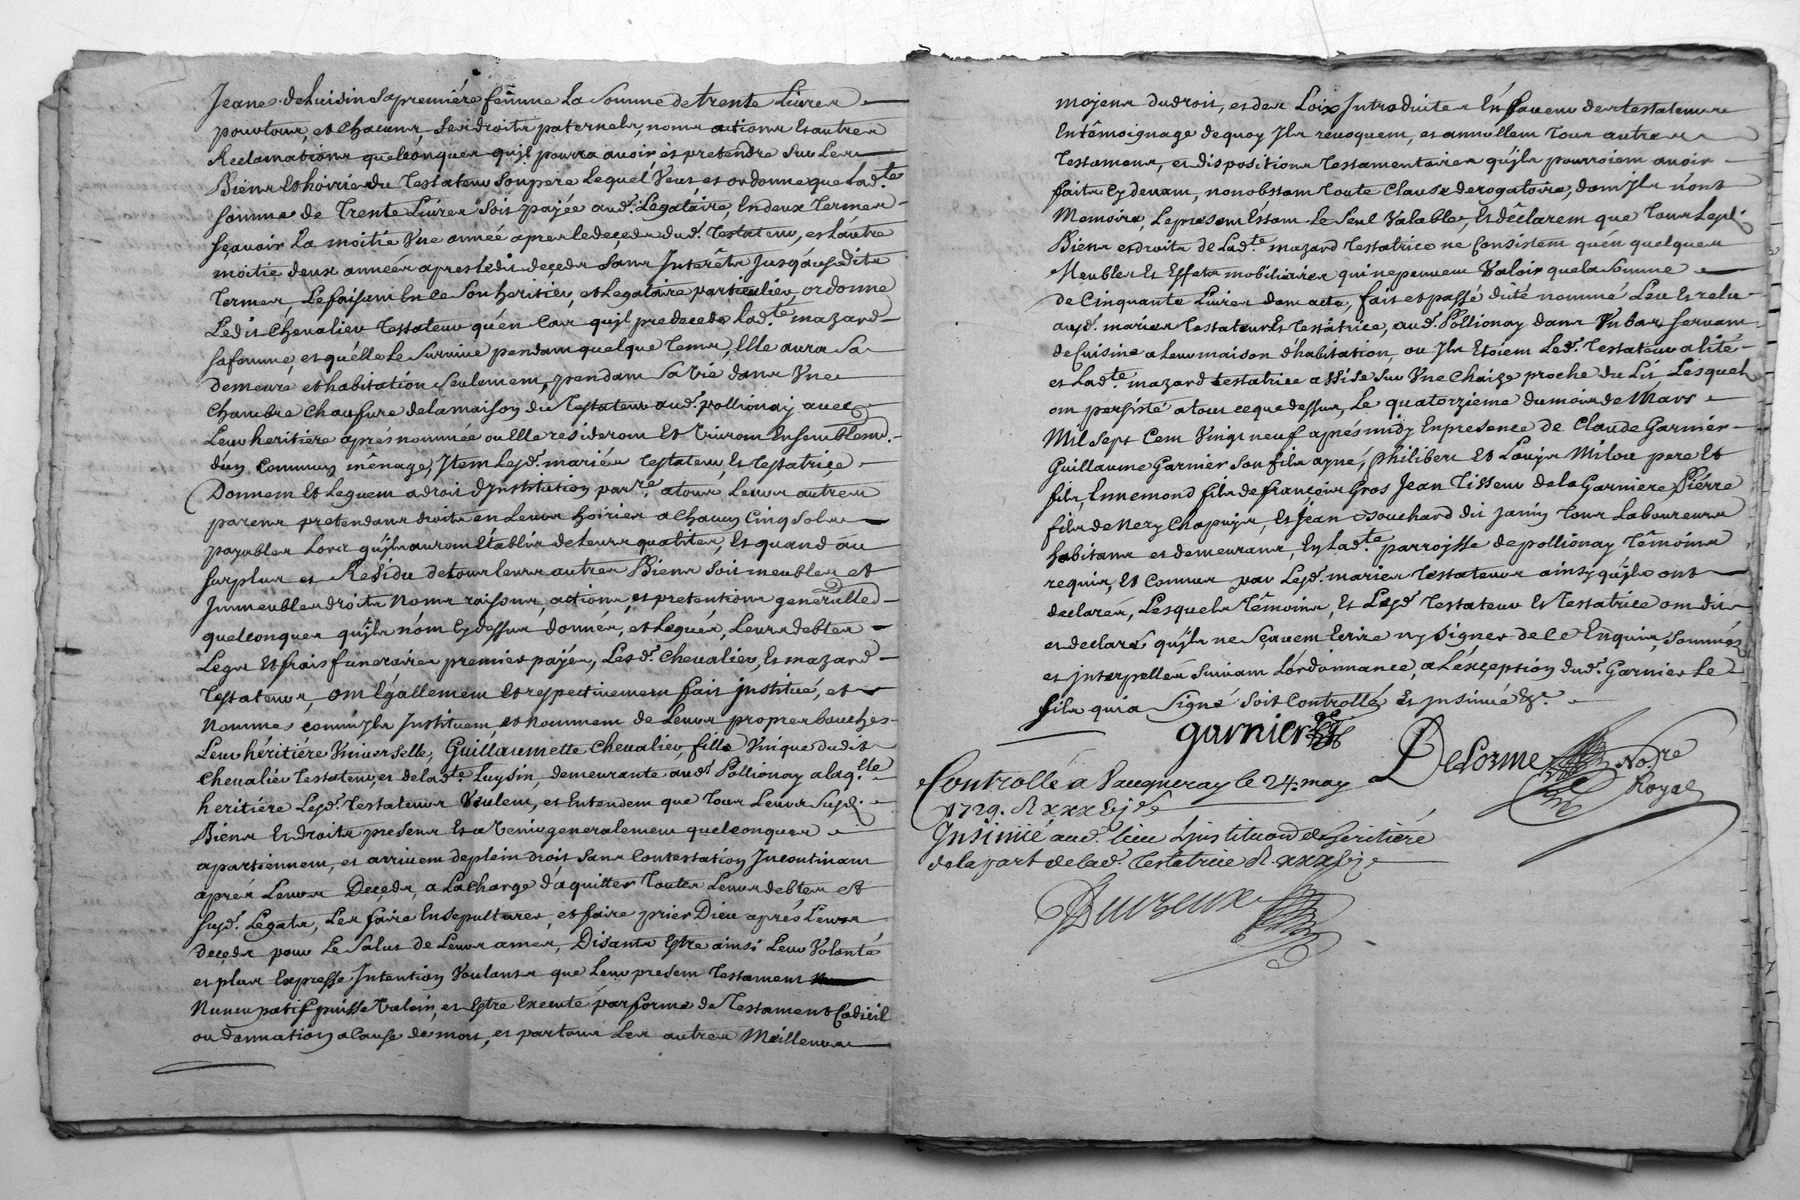 Jeane deluisin sa premiére femme La Somme de trente Livres
pour tous, et chacuns ses droits paternels, noms actions Et autres
Reclamations quelconques quil pourra avoir et pretendre Sur Les
Biens Et hoirie du Testateur Son pere Lequel Veut, et ordonne que Lad.te
somme de Trente Livres Soit payée aud. Legataire, En deux Termes
sçavoir La moitie Une année apres le deceds dud. Testateur, et L'autre
moitie deux années apres ledit deceds Sans Interêts Jusqu'ausdits
Termes, Le faisant En ce Son heritier, et Legataire particulier, ordonne
Ledit Chevalier Testateur qu'en Cas quil predecede Lad.te mazard
sa femme, et qu'elle Le Survive pendant quelque Tems, Elle aura Sa
demeure et habitation Seulement, pendant Sa Vie dans Une
Chambre Chaufure de la maison du Testateur aud. pollionay avec
Leur heritiere aprés nommée ou Elle résideront Et Vivront Ensemblemt.
d'un Commun mênage, Item Lesd. mariés Testateur, Et Testatrice
Donnent Et Leguent a droit d'Institution par.re a tous Leurs autres
parens pretendans droits en Leurs hoiries a Chacun Cinq Sols
payables Lors quils auront Etablis de Leurs qualites, Et quand au
surplus et Residu de tous leurs autres Biens Soit meubles et
Immeubles droits Noms raisons, actions, et pretentions generalled
quelconques quils n'ont Cy dessus donnés, et Legués, Leurs debtes
Legs Et frais funeraires premier payés, Lesd. Chevalier, Et mazard
Testateurs, ont Egallement Et respectivement fait institué, et
Nommé comm'Ils Instituent, et nomment de Leurs propres bouches
Leur héritiére Universelle, Guillaumette Chevalier, fille Unique dudit
Chevalier Testateur, et de lad.te Luysin, demeurante aud. Pollionay a laq.lle
heritiére Lesd. Testateurs Veulent, et Entendent que Tous Leurs Susd.
Biens Et droits presens Et a Venir generalement quelconques
apartiennent, et arrivent de plein droit Sans Contestation Incontinant
apres Leurs Deceds, a La charge d'aquitter Toutes Leurs debtes et
susd. Legats, Les faire Ensepulturer, et faire prier Dieu aprés Leurs
deceds pour Le Salut de Leurs ames, Disants Estre ainsi Leur Volonté
et plus Expresse Intention Voulants que Leur present Testament
Nuncupatif puisse Valoir, et Estre Executé par forme de Testament Codicil
ou donnation a Cause de mort, et par tous Les autres Meilleurs
moyens du droit, et des Loix Introduites En faveur des testateurs
En têmoignage de quoy Ils révoquent, et annullent Tous autres
Testamens, et dispositions Testamentaires quils pourroient avoir
faits Cy devant, nonobstant Toute Clause derogatoire, dont Ils n'ont
Memoire, Le present Estant Le Seul Valable, Et déclarent que Tous Lesd.
Biens et droits de Lad.te mazard Testatrice ne Consistent qu'en quelques
Meubles Et Effets mobiliaires qui ne peuvent Valoir que la Somme
de Cinquante Livres dont acte, fait et passé dicté nommé Leu Et relu
ausd. maries Testateur Et Testatrice, aud. Pollionay dans Un bas servant
de Cuisine a Leur maison d'habitation ou Ils Etoient Led. Testateur alité
et Lad.te mazard testatrice assise Sur Une Chaize proche du Lit Lesquels
ont persisté a tout ce que dessus, Le quatorzieme du mois de Mars
Mil Sept Cent Vingt neuf aprés midy En presence de Claude Garnier
Guillaume Garnier son fils ayné, Philibert Et Louys Milou pere Et
fils, Ennemond fils de françois Gros Jean Tisseur de la Garniere Piérre
fils de Nery Chapuys, Et Jean Bouchard dit Janin Tous Laboureurs
habitans et demeurans, En Lad.te parroisse de pollionay Témoins
requis, Et Connus par Lesd. maries Testateurs ainsy quils ont
declarés, Lesquels Têmoins, Et Lesd. Testateur Et Testatrice ont dit
et declaré quils ne Sçavent Ecrire ny Signer de ce Enquis, Sommés
et interpellés Suivant Lordonnance, a L'exception dud. Garnier Le
fils qui a Signé Soit Controllé, Et Insinué &.
garnier
Delorme No.re
Royal
Controllé a Vaugneray le 24. may
1729.
Insinüé aud. lieu Linstituaon d'heritiére
de la part de lad. Testatrice